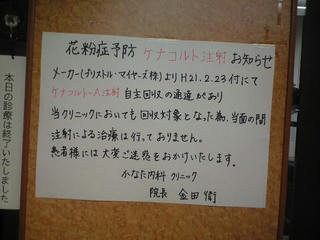 花粉症予防 ケナコルト注射 お知らせ
メーカー(ブリストル・マイヤーズ株)より H21.2.23付にて
ケナコルトーA注射 自主回収の通達があり
当クリニックにおいても回収対象となった為、当面の間
注射による治療は行っておりません。
患者様には大変ご迷惑をおかけいたします。
かなた内科クリニック
院長 金田 衛
本日の診療は終了いたしました